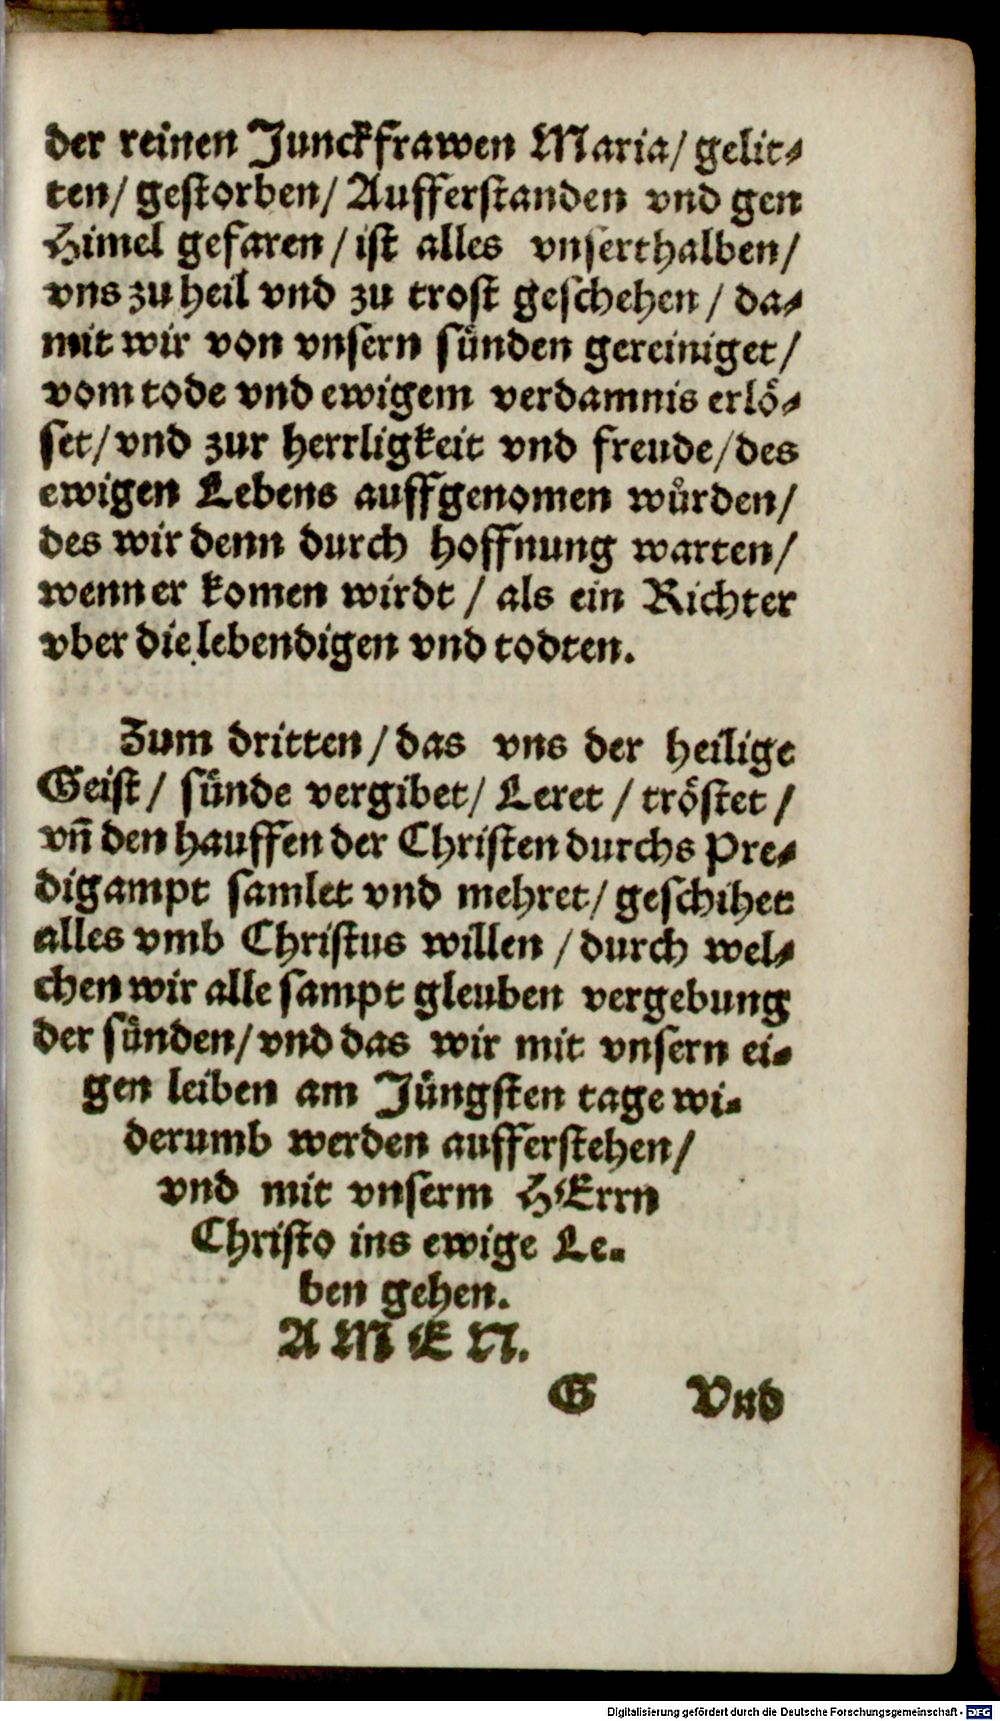 der reinen Junckfrawen Maria/ gelit⸗
ten/ gestorben/ Aufferstanden vnd gen
Himel gefaren/ ist alles vnserthalben/
vns zu heil vnd zu trost geschehen/ da⸗
mit wir von vnsern sünden gereiniget/
vom tode vnd ewigem verdamnis erlö⸗
set/ vnd zur herrligkeit vnd freude/ des
ewigen Lebens auffgenomen wůrden/
des wir denn durch hoffnung warten/
wenn er komen wirdt/ als ein Richter
vber die lebendigen vnd todten.
Zum dritten/ das vns der heilige
Geist/ sünde vergibet/ Leret/ tröstet/
vñ den hauffen der Christen durchs Pre⸗
digampt samlet vnd mehret/ geschihet
alles vmb Christus willen/ durch wel⸗
chen wir alle sampt gleuben vergebung
der sünden/ vnd das wir mit vnsern ei⸗
gen leiben am Jüngsten tage wi⸗
derumb werden aufferstehen/
vnd mit vnserm HErrn
Christo ins ewige Le⸗
ben gehen.
AMEN.
G Vnd
Digitalisierung gefördert durch die Deutsche Forschungsgemeinschaft - DFG